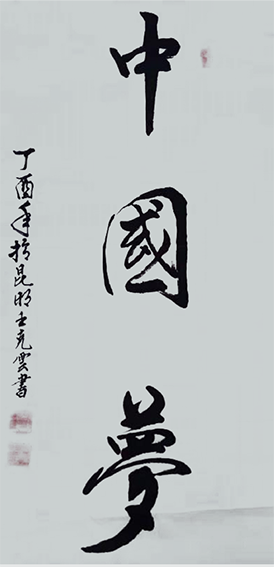 中國夢
丁酉年於昆明王克雲書